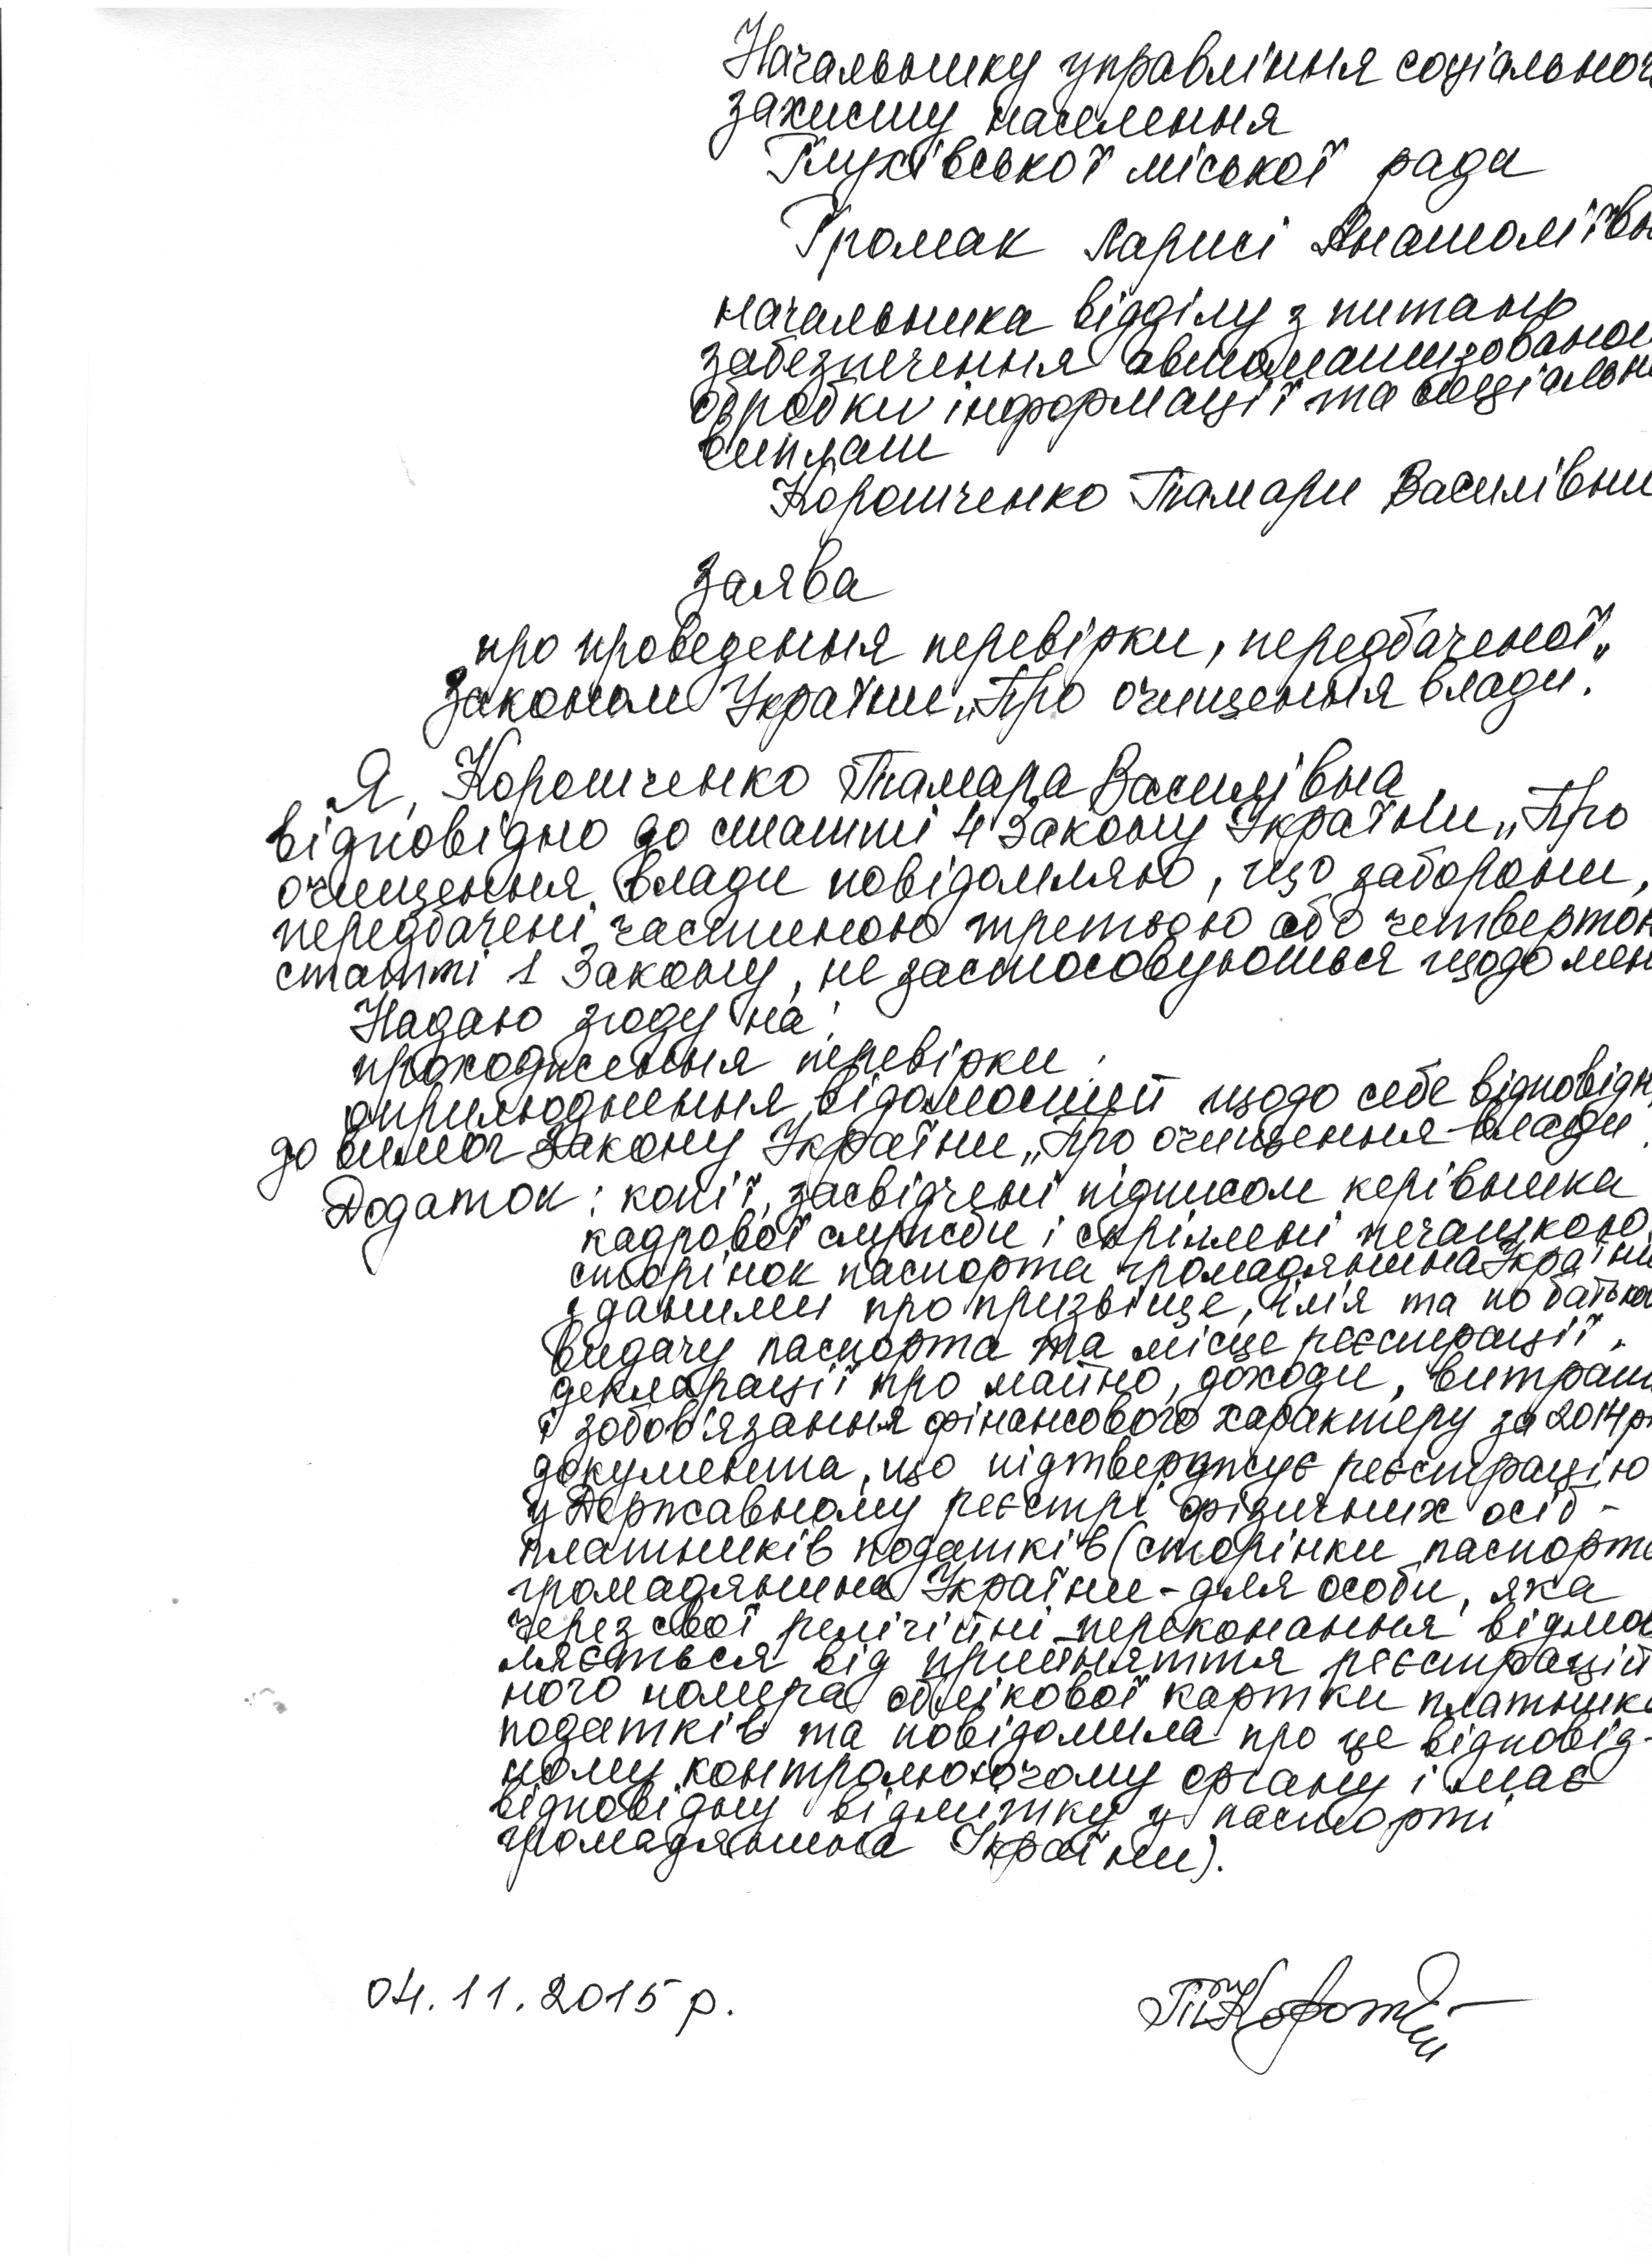 Начальнику управління соціальног
захисту населення
Глухівської міської ради
Громак Ларисі Анатоліївн
начальника відділу з питань
забезпечення автоматизованої
обробки інформації та соціальн
виплат
Коротченко Тамари Василівни
Заява
про проведення перевірки, передбаченої„
Законом України „Про очищення влади.
Я, Коротченко Тамара Василівна,
відповідно до статті 4 Закону України „Про
очищення влади повідомляю, що заборони,
передбачені частиною третьою або четвертою
статті 1 Закону, не застосовуються щодо мен
Надаю згоду на:
проходження перевірки;
оприлюднення відомостей щодо себе відповідн
до вимог Закону України „Про очищення влади.
Додаток: копії, засвідчені підписом керівника
кадрової служби і скріплені печаткою,
сторінок паспорта громадянина України
з даними про прізвище, ім'я та по батькові
видачу паспорта та місце реєстрації,
декларації про майно, доходи, витрати
і зобов'язання фінансового характеру за 2014 р
документа, що підтверджує реєстрацію
у Державному реєстрі фізичних осіб -
платників податків (сторінки паспорта
громадянина України - для особи, яка
через свої релігійні переконання відмов
ляється від прийняття реєстрацій
ного номера облікової картки платника
податків та повідомила про це відповід-
ному контролюючому органу і має
відповідну відмітку у паспорті
громадянина України).
04.11.2015 р.